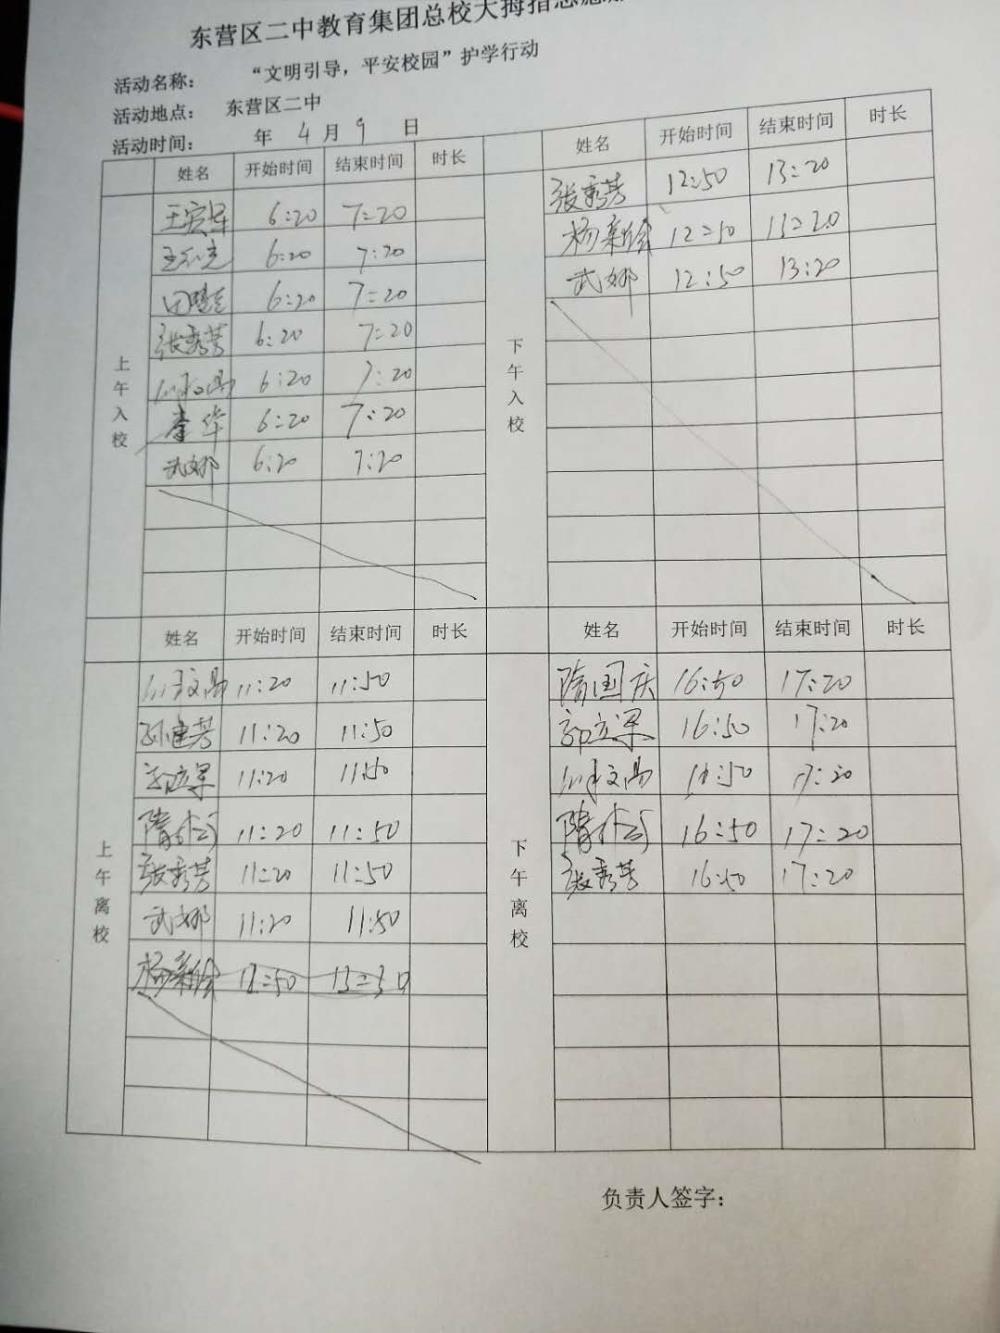 东营区二中教育集团总校大拇指志愿
活动名称： “文明引导，平安校园”护学行动
活动地点： 东营区二中
活动时间： 年 4 月 9 日
上午入校
姓名 开始时间 结束时间 时长
6:20 7:20
6:20 7:20
6:20 7:20
张秀芳 6:20 7:20
6:20 7:20
秦华 6:20 7:20
武娜 6:20 7:20
下午入校
姓名 开始时间 结束时间 时长
张秀芳 12:50 13:20
杨新 12:50 13:20
武娜 12:50 13:20
上午离校
姓名 开始时间 结束时间 时长
11:20 11:50
孙建芳 11:20 11:50
郭立军 11:20 11:50
隋 11:20 11:50
张秀芳 11:20 11:50
武娜 11:20 11:50
杨新 12:50
下午离校
姓名 开始时间 结束时间 时长
隋国庆 16:50 17:20
郭立军 16:50 17:20
17:20
隋 16:50 17:20
张秀芳 16:50 17:20
负责人签字：